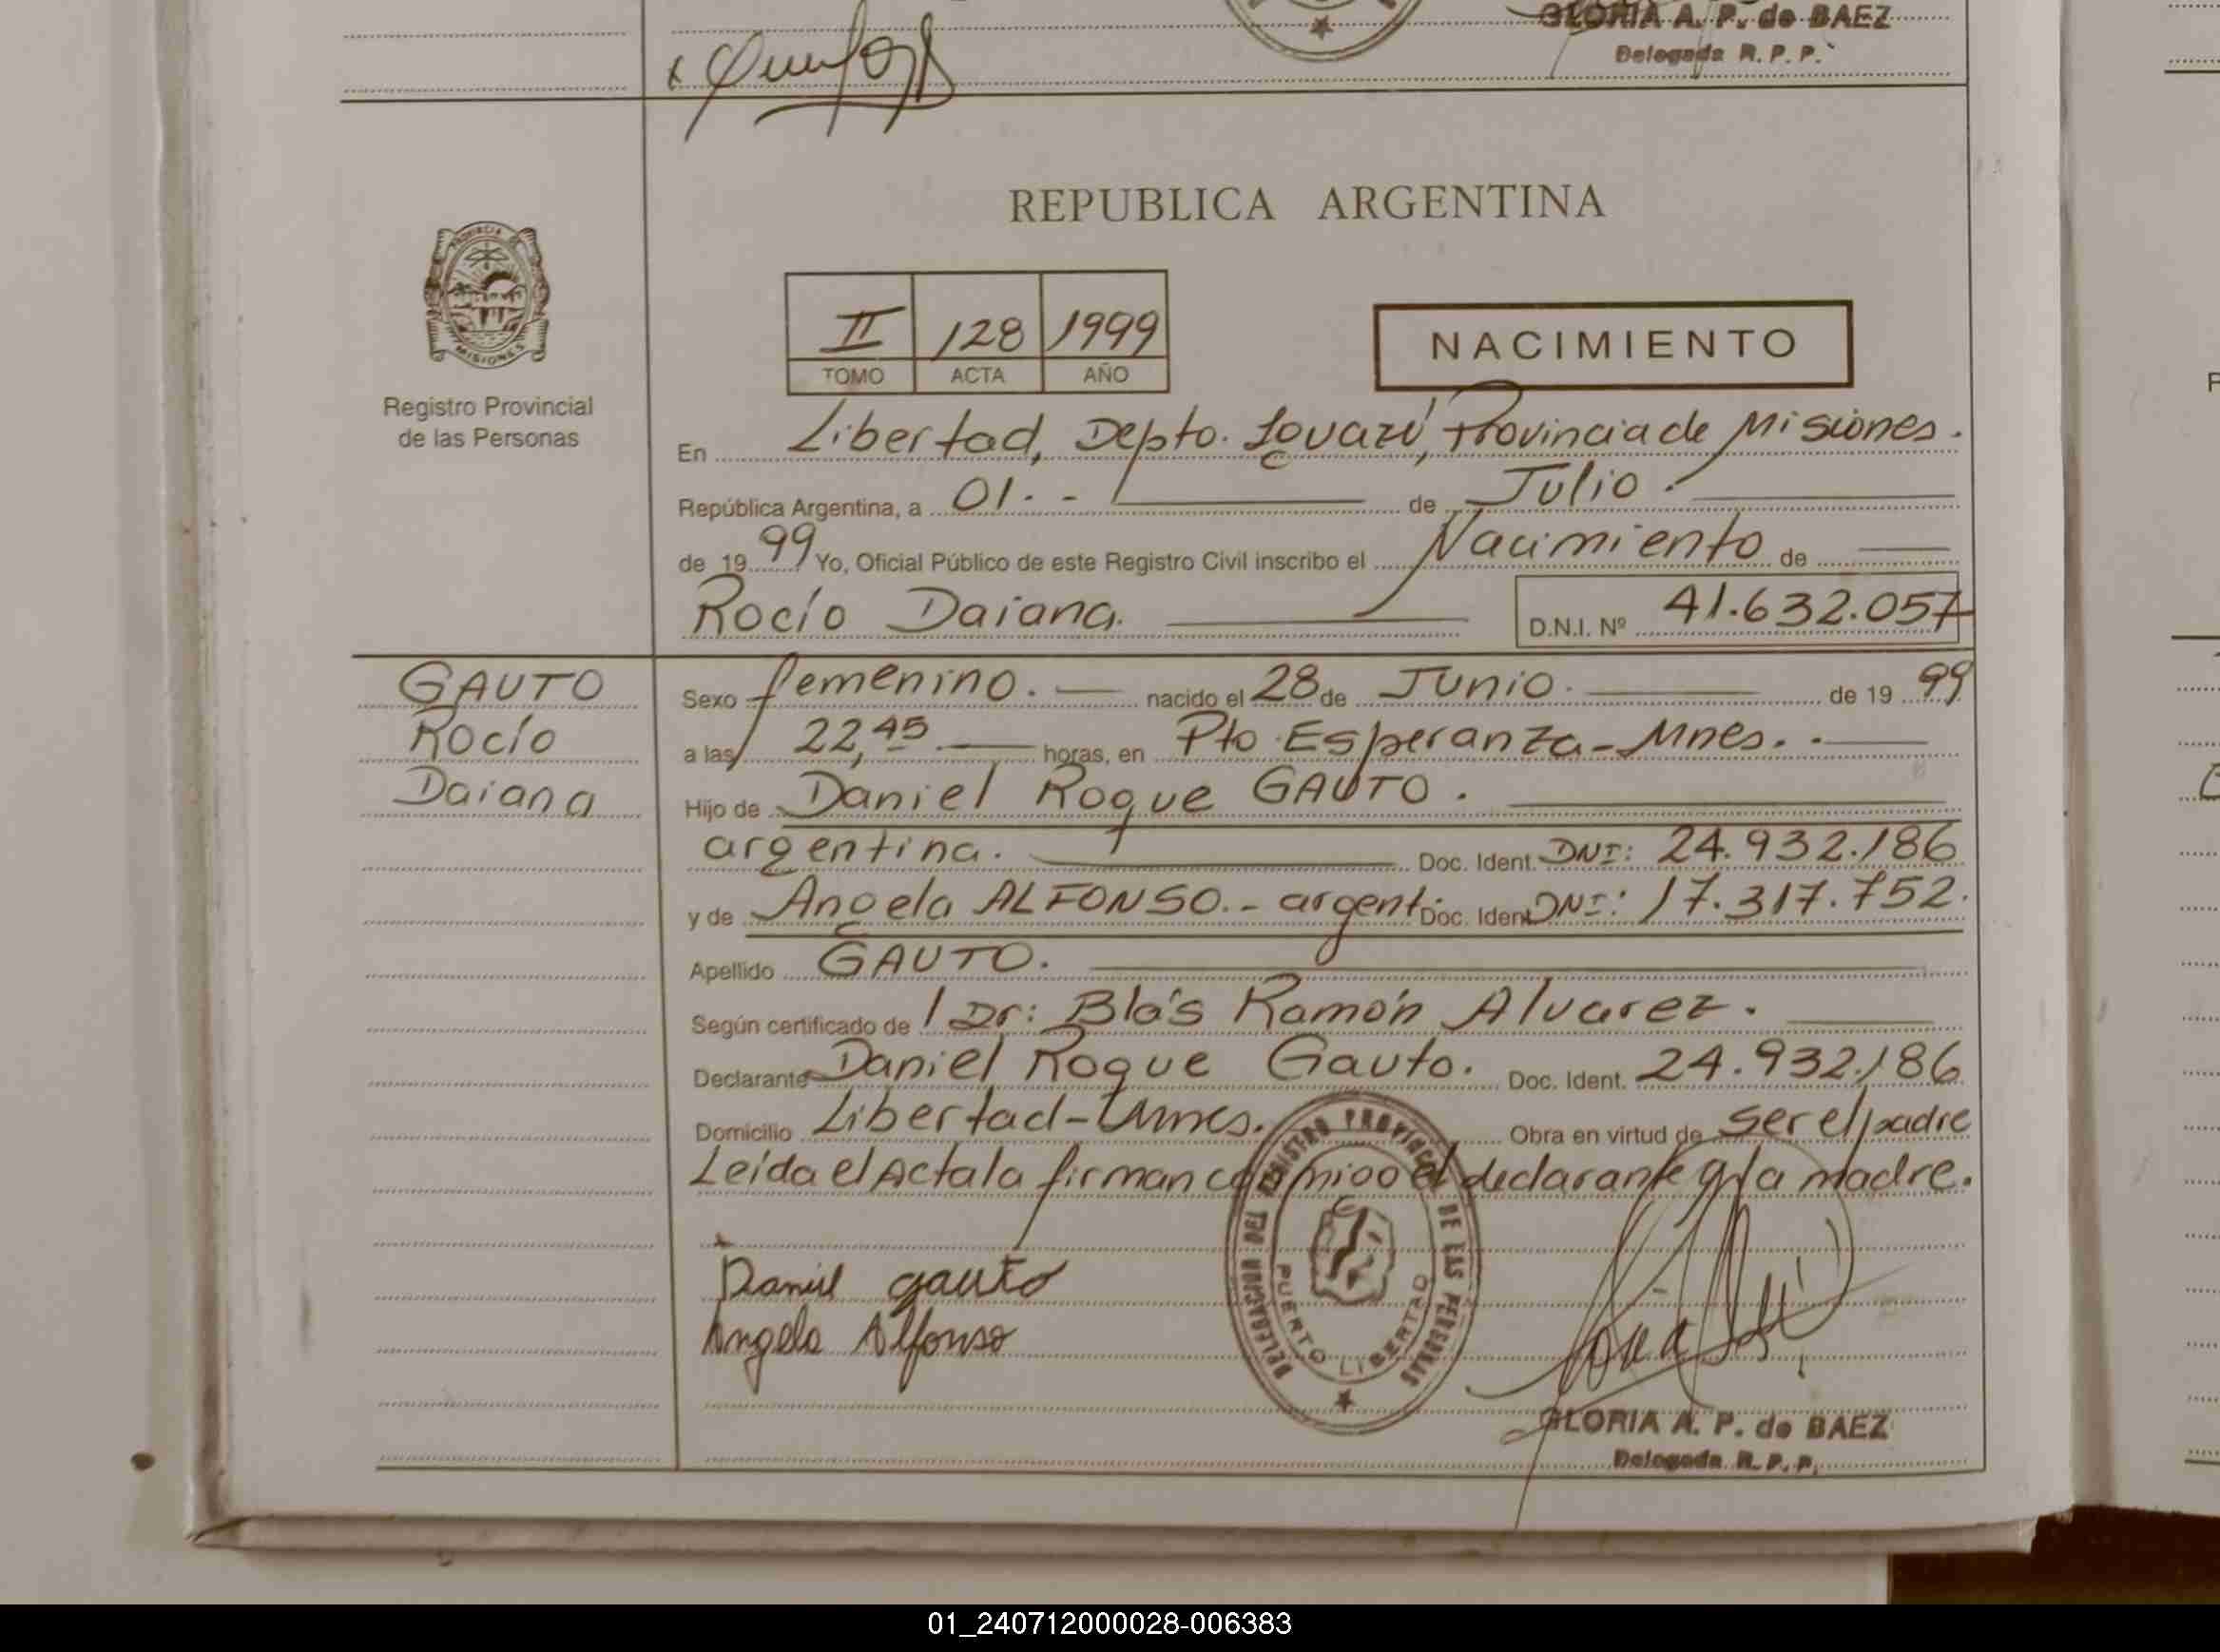 GLORIA A. P. de BAEZ
Delegada R. P. P.
REPUBLICA ARGENTINA
PROVINCIA DE
MISIONES
Registro Provincial
de las Personas
II 128 1999
TOMO ACTA AÑO
NACIMIENTO
En Libertad, Depto. Iguazú, Provincia de Misiones.
República Argentina, a 01.- de Julio.
de 1999 Yo, Oficial Público de este Registro Civil inscribo el Nacimiento de
Rocío Daiana. D.N.I. Nº 41.632.057
GAUTO
Rocío
Daiana
Sexo femenino. nacido el 28 de Junio. de 1999
a las 22,45 horas, en Pto Esperanza-Mnes.-
Hijo de Daniel Roque GAUTO.
argentina. Doc. Ident. DNI: 24.932.186
y de Angela ALFONSO.- argent Doc. Ident DNI: 17.317.752.
Apellido GAUTO.
Según certificado de l Dr: Blás Ramón Alvarez.
Declarante Daniel Roque Gauto. Doc. Ident. 24.932.186
Domicilio Libertad-Mnes. Obra en virtud de ser el padre
Leída el Acta la firman conmigo el declarante y la madre.
Daniel gauto
Angela Alfonso
DELEGACION DEL REGISTRO PROVINCIAL DE LAS PERSONAS
PUERTO LIBERTAD
GLORIA A. P. de BAEZ
Delegada R. P. P.
01_240712000028-006383